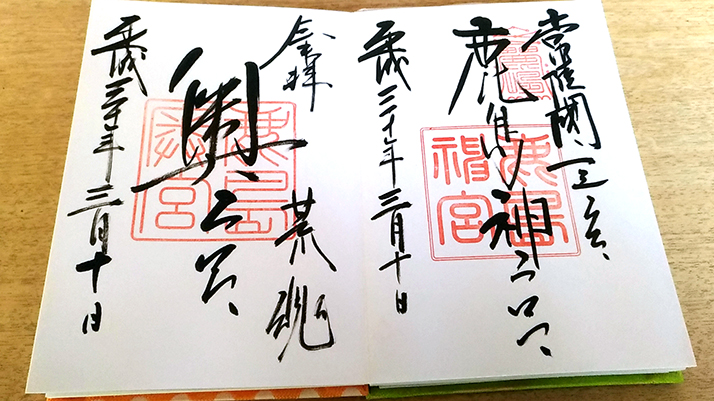 常陸國一之宮
鹿島神宮
鹿島神宮
平成三十年三月十日
奉拝
荒魂
奥宮
平成三十年三月十日